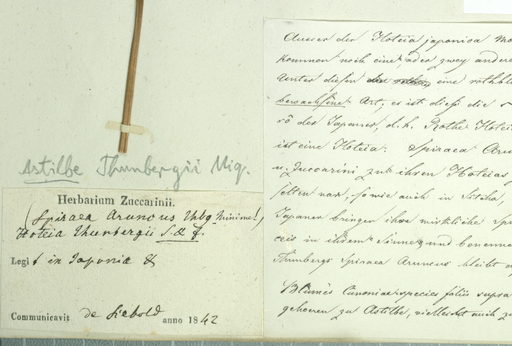 Astilbe Thunbergii Miq.
Herbarium Zuccarinii.
(Spiraea Aruncus Thbg minime!)
Hoteia Thunbergii S. & Z.
Legit in Japonia
Communicavit de Siebold anno 1842
Ausser der Hoteia japonica
kommen noch eine oder zwey andere
Unter diesen eine rothbl
bewachsene Art, es ist diess die
rô der Japaner, d.h. Rothe Hotei
ist eine Hoteia: Spiraea Arun
u. Zuccarini zub ihren Hoteias
selten vor, sowie auch in Sitcha,
Japaner bringen ihre wirkliche Spi
ceis in diesem Sinne und benennen
Thunbergs Spiraea Aruncus bleibt
Blumes Cunoniaespecies foliis supra
gehoeren zu Astilbe, vielleicht auch